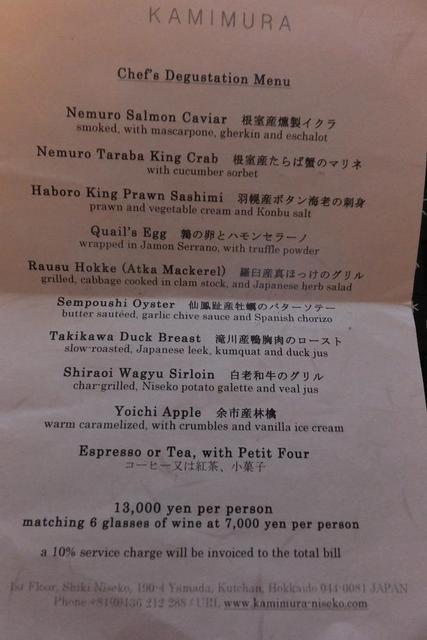 KAMIMURA
Chef's Degustation Menu
Nemuro Salmon Caviar 根室産燻製イクラ
smoked, with mascarpone, gherkin and eschalot
Nemuro Taraba King Crab 根室産たらば蟹のマリネ
with cucumber sorbet
Haboro King Prawn Sashimi 羽幌産ボタン海老の刺身
prawn and vegetable cream and Konbu salt
Quail's Egg 鶉の卵とハモンセラーノ
wrapped in Jamon Serrano, with truffle powder
Rausu Hokke (Atka Mackerel) 羅臼産真ほっけのグリル
grilled, cabbage cooked in clam stock, and Japanese herb salad
Sempoushi Oyster 仙鳳趾産牡蠣のバターソテー
butter sautéed, garlic chive sauce and Spanish chorizo
Takikawa Duck Breast 滝川産鴨胸肉のロースト
slow-roasted, Japanese leek, kumquat and duck jus
Shiraoi Wagyu Sirloin 白老和牛のグリル
char-grilled, Niseko potato galette and veal jus
Yoichi Apple 余市産林檎
warm caramelized, with crumbles and vanilla ice cream
Espresso or Tea, with Petit Four
コーヒー又は紅茶、小菓子
13,000 yen per person
matching 6 glasses of wine at 7,000 yen per person
a 10% service charge will be invoiced to the total bill
1st Floor, Shiki Niseko, 190-4 Yamada, Kutchan, Hokkaido 044-0081 JAPAN
Phone +81(0)136 212 288 / URL www.kamimura-niseko.com